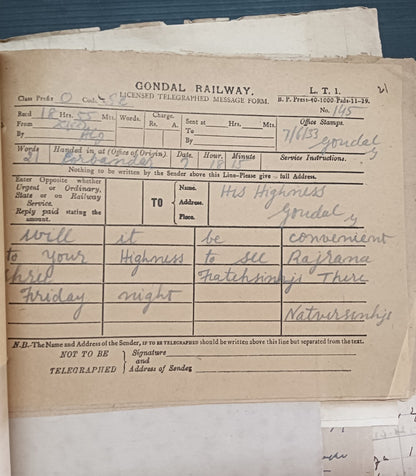 21
GONDAL RAILWAY.
L. T. 1.
Class Prefix O Code SE
LICENSED TELEGRAPHED MESSAGE FORM.
B. P. Press-40-1000 Pads-11-29.
No. 145
Recd 18 Hrs. 55 Mts. Words.
Charge. Rs. A.
Sent at Hrs. Mts.
Office Stamps.
From
To
7/6/33
By
By
Gondal
Words Handed in at (Office of Origin). Date. Hour. Minute
Service Instructions.
21 Porbandar 7 18 15
Nothing to be written by the Sender above this Line-Please give full Address.
Enter Opposite whether Urgent or Ordinary, State or on Railway Service.
Reply paid stating the amount.
TO
Name.
Address.
Place.
His Highness
Gondal
will it be convenient
to your Highness to see Rajrana
Fatehsinhji There
Friday night
Natversinhji
N.B.-The Name and Address of the Sender, IF TO BE TELEGRAPHED should be written above this line but separated from the text.
NOT TO BE TELEGRAPHED
Signature
and
Address of Sender